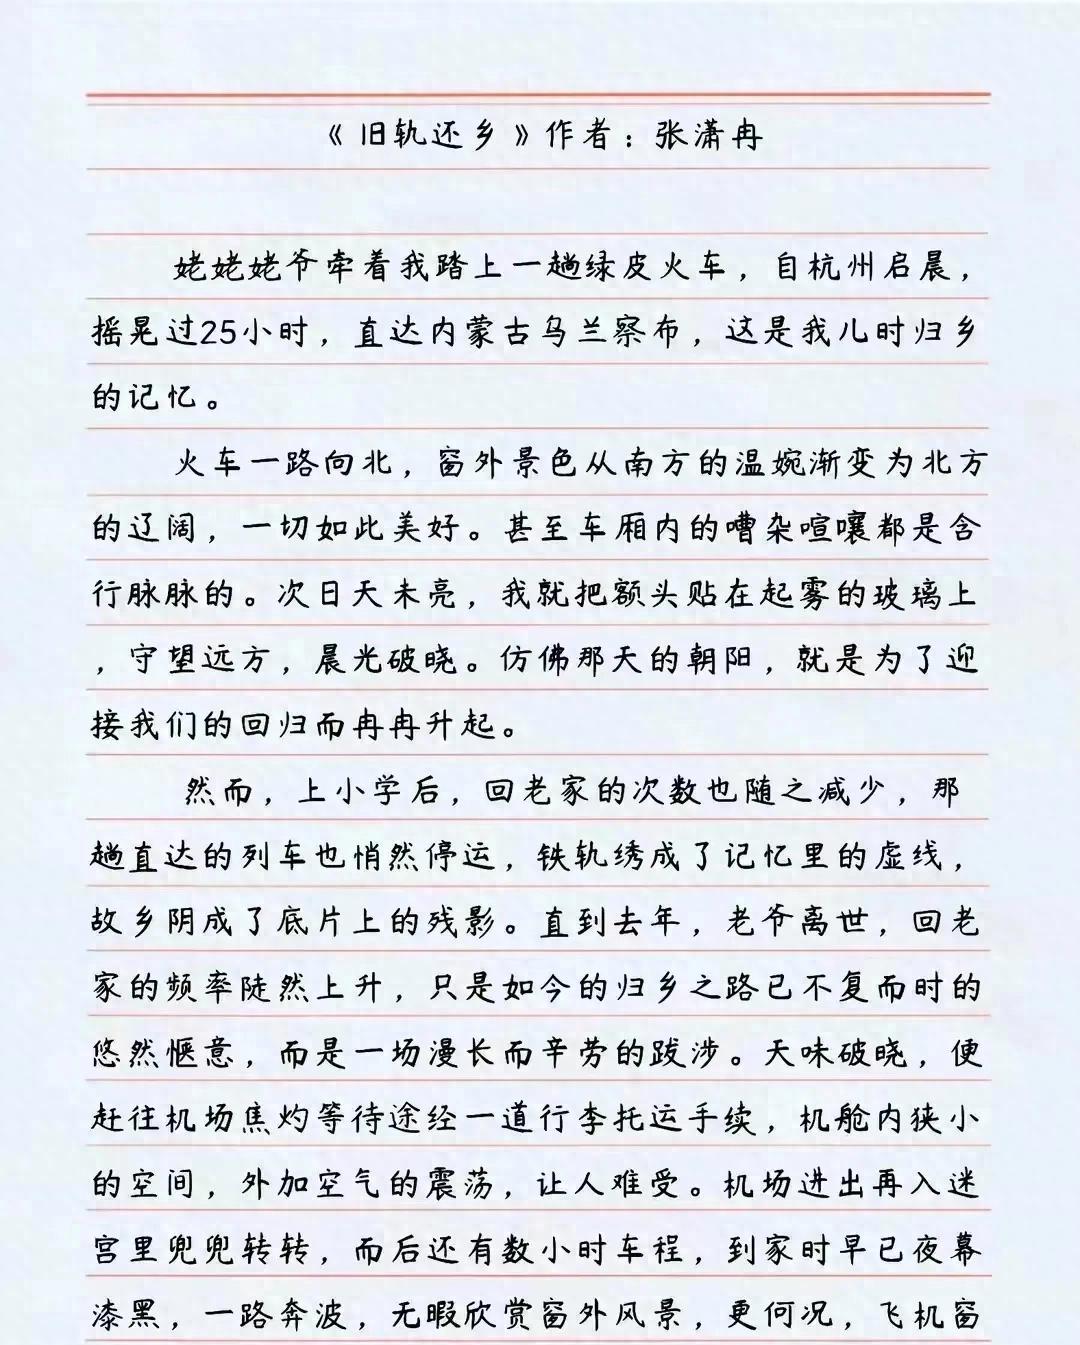 《旧轨还乡》作者：张潇冉
姥姥姥爷牵着我踏上一趟绿皮火车，自杭州启晨，
摇晃过25小时，直达内蒙古乌兰察布，这是我儿时归乡
的记忆。
火车一路向北，窗外景色从南方的温婉渐变为北方
的辽阔，一切如此美好。甚至车厢内的嘈杂喧嚷都是含
行脉脉的。次日天未亮，我就把额头贴在起雾的玻璃上
，守望远方，晨光破晓。仿佛那天的朝阳，就是为了迎
接我们的回归而冉冉升起。
然而，上小学后，回老家的次数也随之减少，那
趟直达的列车也悄然停运，铁轨绣成了记忆里的虚线，
故乡阴成了底片上的残影。直到去年，老爷离世，回老
家的频率陡然上升，只是如今的归乡之路已不复而时的
悠然惬意，而是一场漫长而辛劳的跋涉。天味破晓，便
赶往机场焦灼等待途经一道行李托运手续，机舱内狭小
的空间，外加空气的震荡，让人难受。机场进出再入迷
宫里兜兜转转，而后还有数小时车程，到家时早已夜幕
漆黑，一路奔波，无暇欣赏窗外风景，更何况，飞机窗